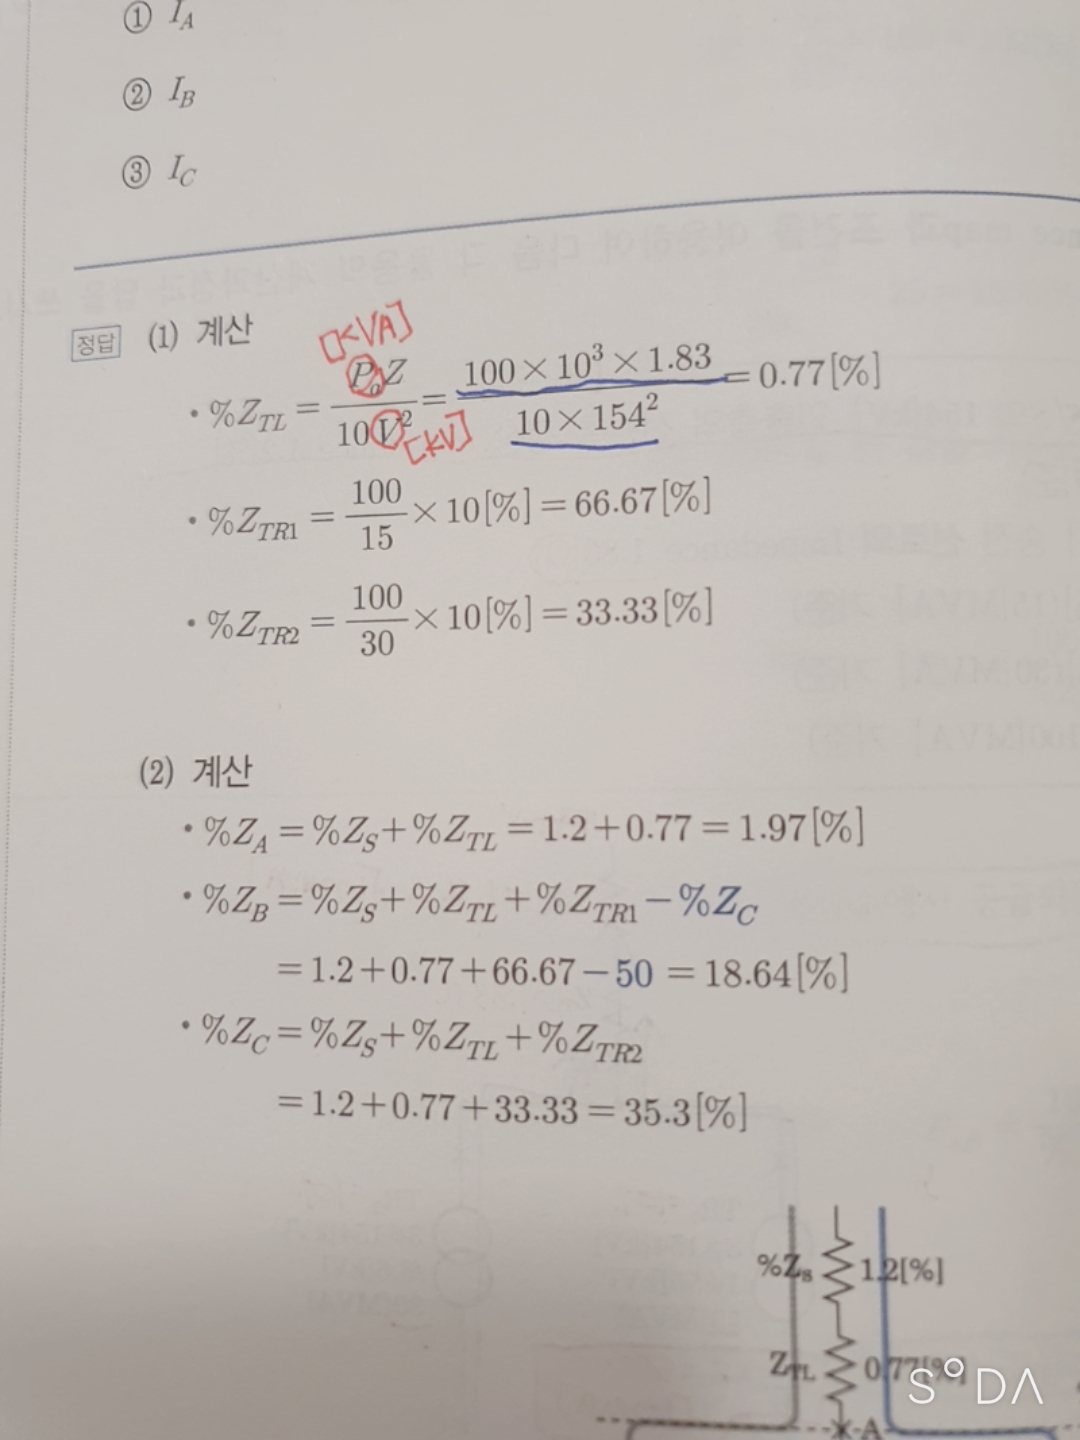 ① I_A
② I_B
③ I_C
정답 (1) 계산
[KVA]
· %Z_TL = P_aZ / 10V² = 100×10³×1.83 / 10×154² = 0.77[%]
[KV]
· %Z_TR1 = 100/15 × 10[%] = 66.67[%]
· %Z_TR2 = 100/30 × 10[%] = 33.33[%]
(2) 계산
· %Z_A = %Z_S + %Z_TL = 1.2+0.77 = 1.97[%]
· %Z_B = %Z_S + %Z_TL + %Z_TR1 − %Z_C
= 1.2+0.77+66.67−50 = 18.64[%]
· %Z_C = %Z_S + %Z_TL + %Z_TR2
= 1.2+0.77+33.33 = 35.3[%]
%Z_s 1.2[%]
Z_TL 0.77[%]
A
SODA